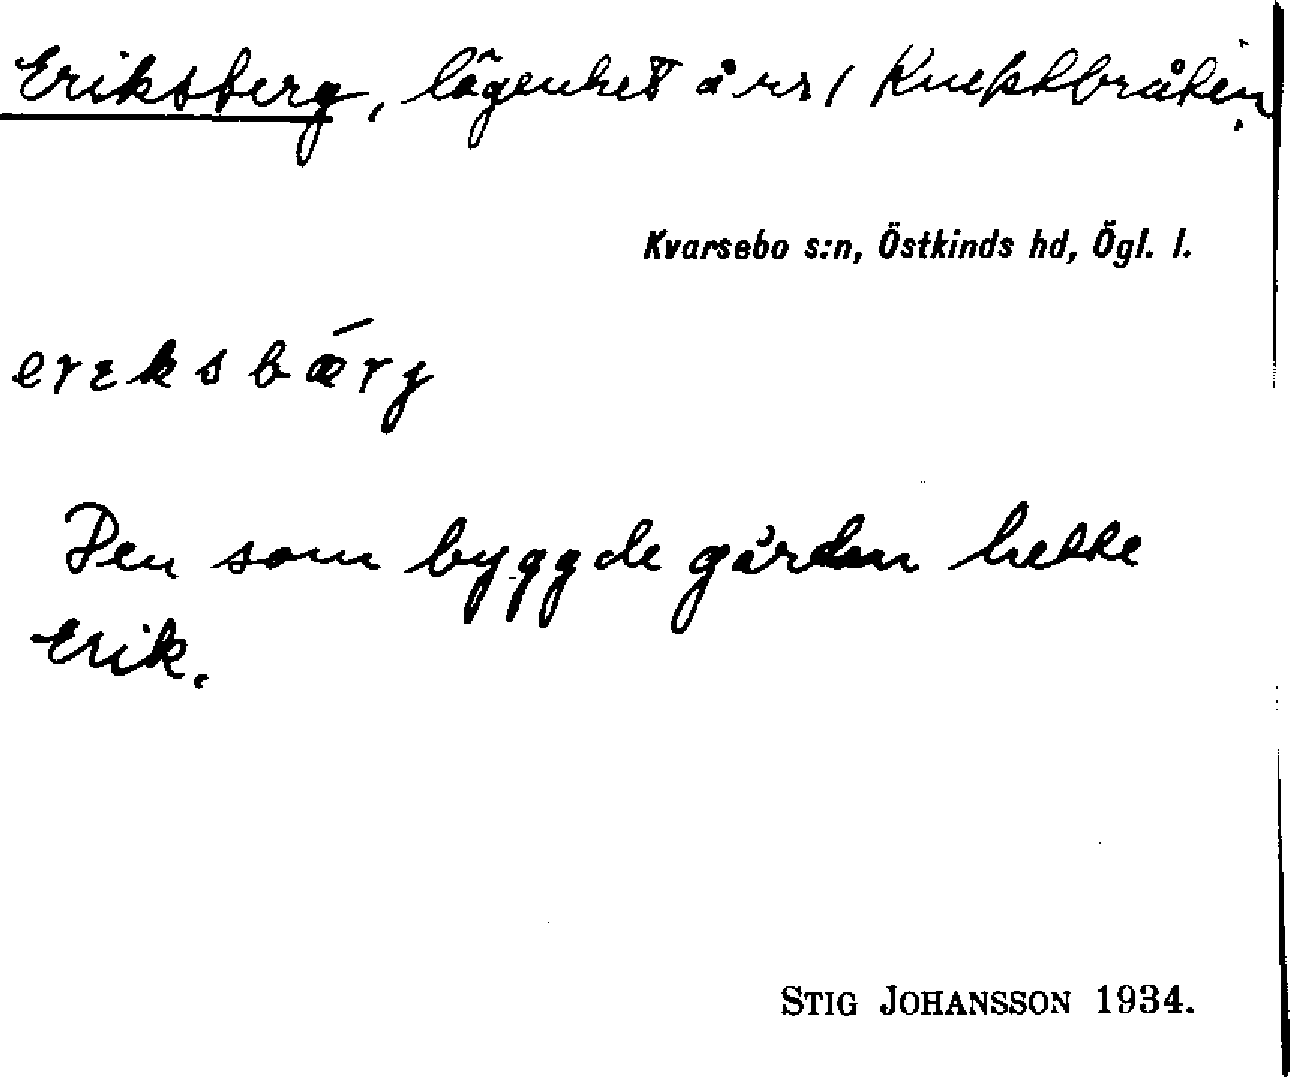 Eriksberg, lägenhet å rs 1 Knektbråten
Kvarsebo s:n, Östkinds hd, Ögl. l.
erɪksbǽrj
Den som byggde gården hette
Erik.
STIG JOHANSSON 1934.